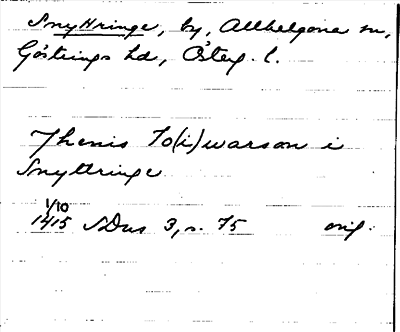 Snyttringe, by, Allhelgona sn,
Göstrings hd, Östg. l.
Thenis To(i)warson i
Snyttringe
1/10
1415 SDns 3, s. 75 orig.